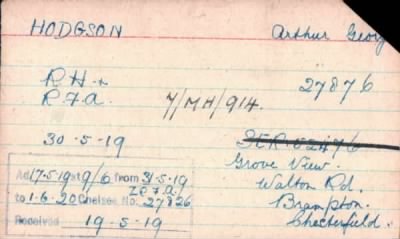 HODGSON Arthur Georg
R H + 27876
R.F.A. 7/MH/914.
30-5-19
Grove View.
Ad 17.5.19 st 9/6 from 31.5.19 Walton Rd.
to 1.6.20 Chelsea No. 27826 Brampton.
Received 19-5-19 Chesterfield.